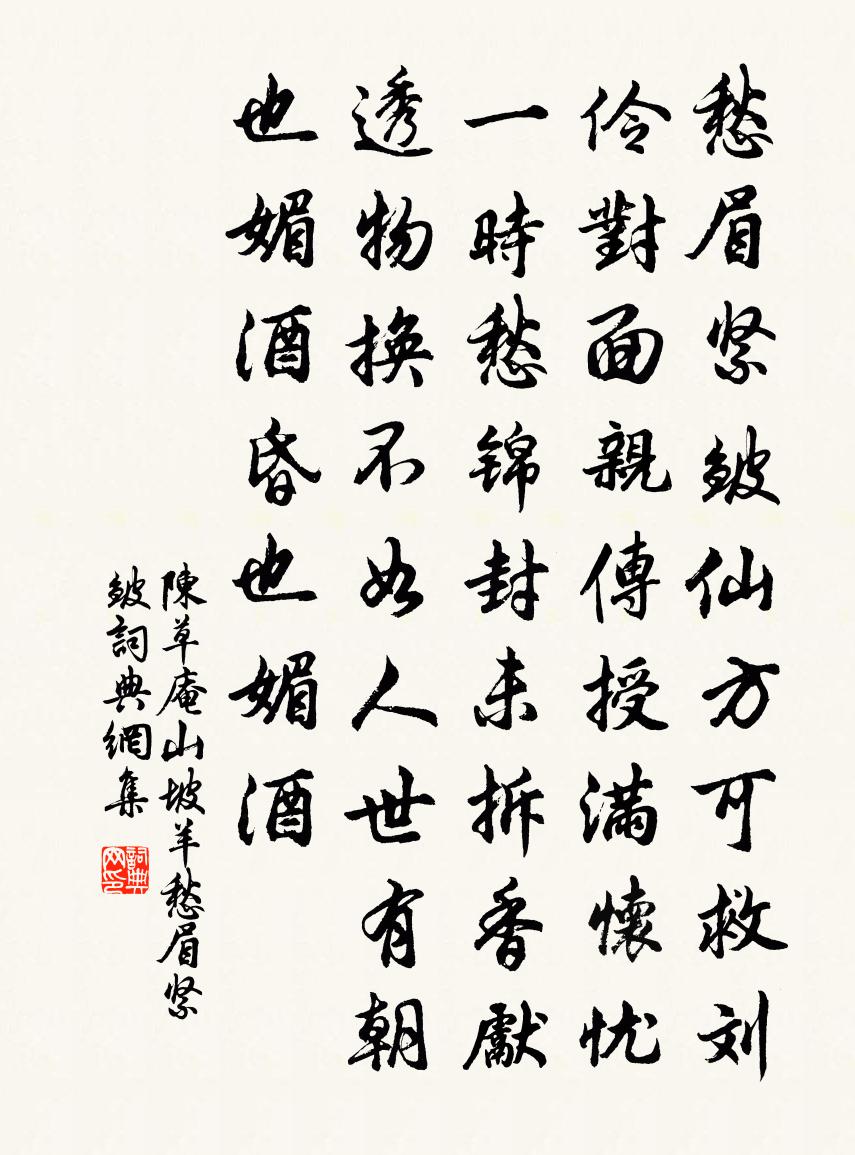 愁眉紧皺仙方可救刘
伶對面親傳授滿懷忧
一時愁錦封未拆香獻
透物換不如人世有朝
也媚酒昏也媚酒
陳草庵山坡羊愁眉紧
皺詞典網集
詞典
网印